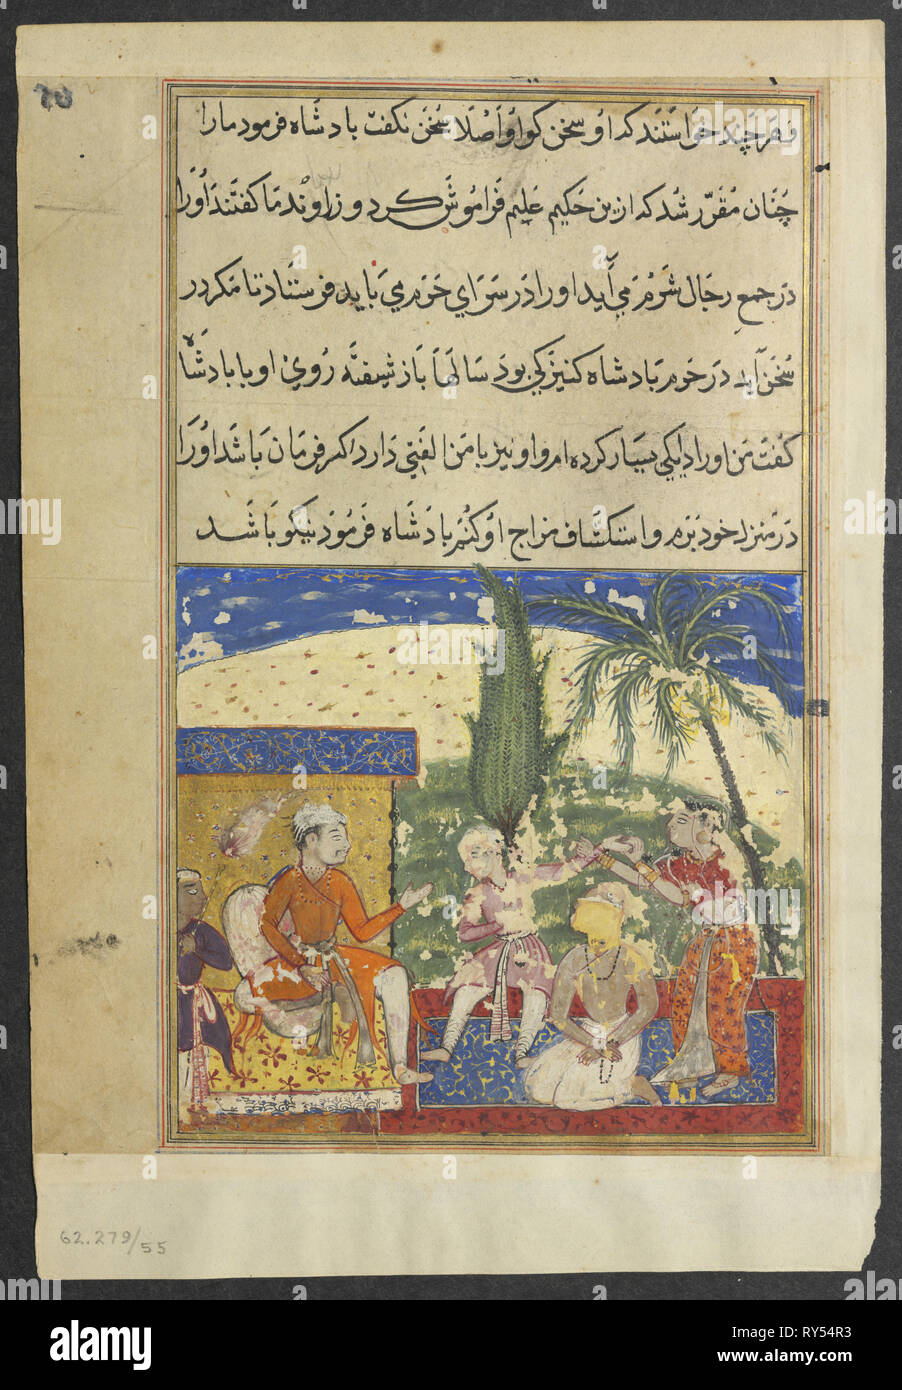 و هرچند خواستند که او سخن گوید او اصلا سخن نکفت بادشاه فرمود ما را
چنان مقرر شد که ازین حکیم علیم فراموش کرد و زاوند ما کفتند او را
در جمع رجال شرم می آید او را در سرای حرم می باید فرستاد تا مکر در
سخن آید در حرم بادشاه کنیزکی بود سالها باز شیفته روی او با بادشاه
کفت من او را دیلکی بسیار کرده ام و او نیز با من الفتی دارد اکر فرمان باشد او را
در منزل خود برم و استکشاف مزاج او کنم بادشاه فرمود نیکو باشد
62.279/55
alamy
RY54R3
www.alamy.com